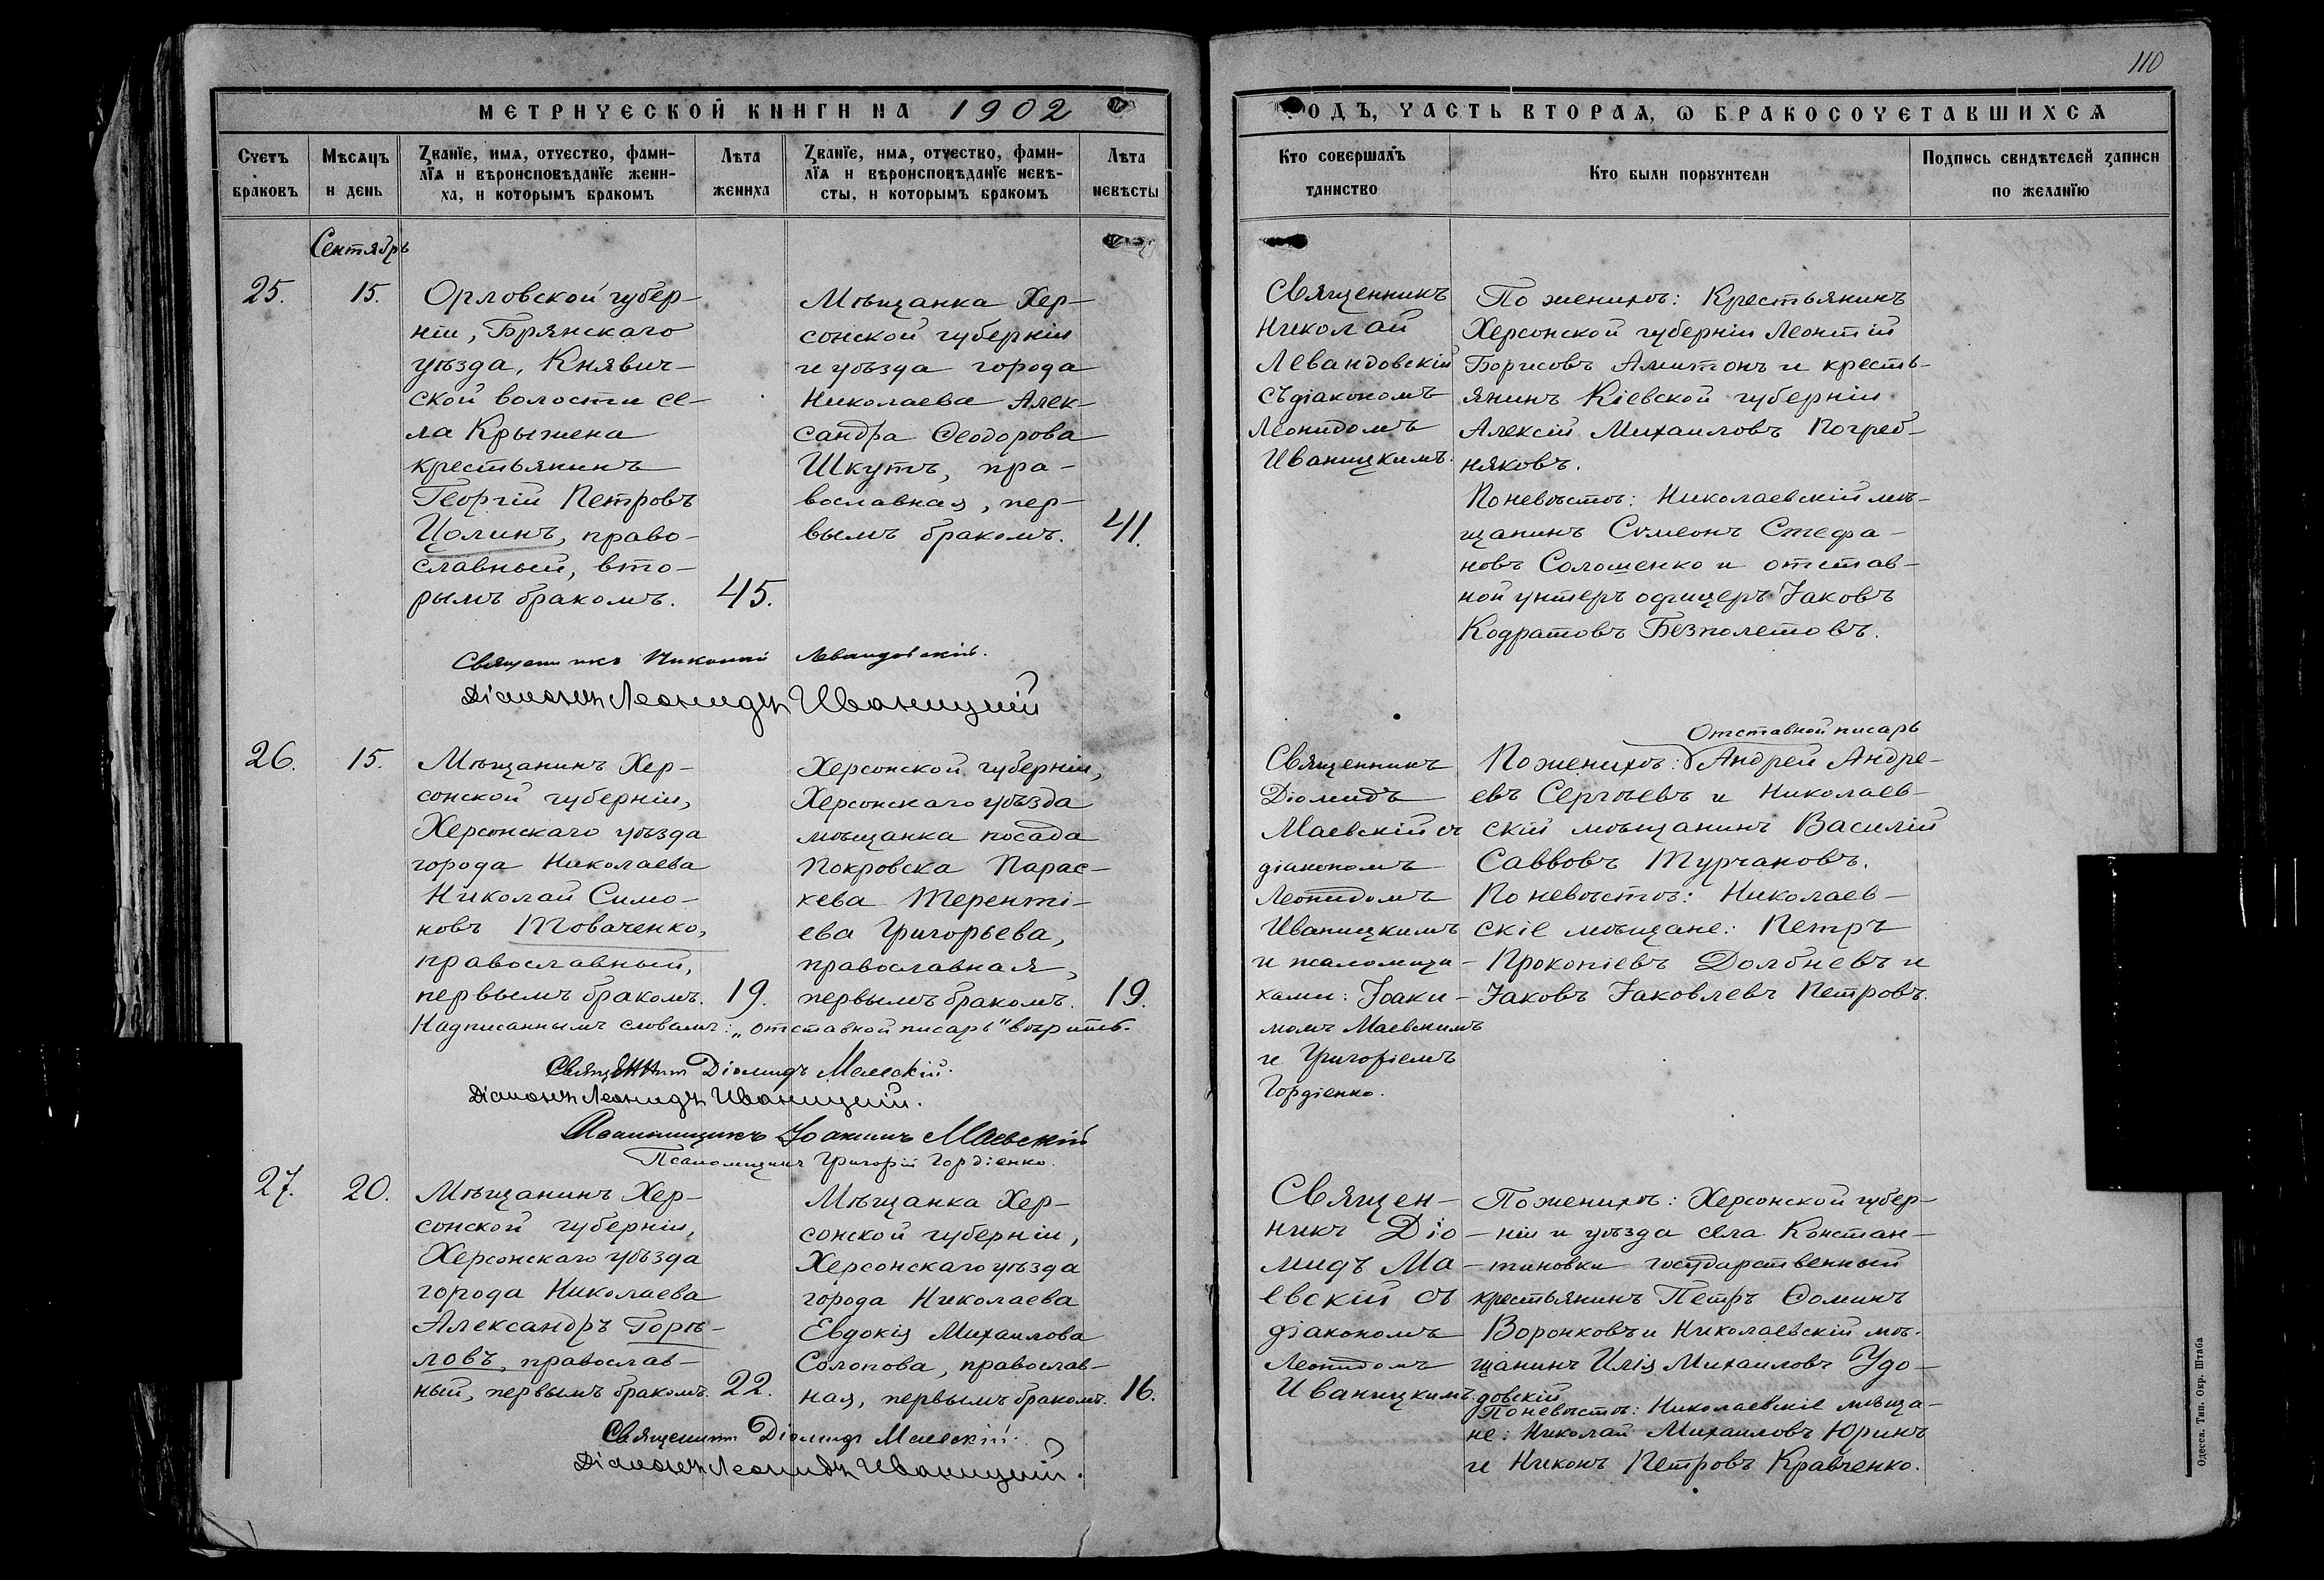 110
МЕТРИЧЕСКОЙ КНИГИ НА 1902
ГОДЪ, ЧАСТЬ ВТОРАЯ, Ѡ БРАКОСОЧЕТАВШИХСЯ
Счетъ браковъ
Мѣсяцъ и день
Званїе, имя, отчество, фами-
лїя и вѣроисповѣданїе жени-
ха, и которымъ бракомъ
Лѣта жениха
Званїе, имя, отчество, фами-
лїя и вѣроисповѣданїе невѣ-
сты, и которымъ бракомъ
Лѣта невѣсты
Кто совершалъ таинство
Кто были поручители
Подпись свидѣтелей записи
по желанїю
Сентябрь
25.
15.
Орловской губер-
ніи, Брянскаго
уѣзда, Княвич-
ской волости се-
ла Крыжена
крестьянинъ
Георгій Петровъ
Цолинъ, право-
славный, вто-
рымъ бракомъ.
45.
Мѣщанка Хер-
сонской губерніи
и уѣзда города
Николаева Алек-
сандра Ѳеодорова
Шкутъ, пра-
вославная, пер-
вымъ бракомъ.
41.
Священникъ
Николай
Левандовскій
съ діакономъ
Леонидомъ
Иваницкимъ.
По женихѣ: Крестьянинъ
Херсонской губерніи Леонтій
Борисовъ Амитонъ и кресть-
янинъ Кіевской губерніи
Алексій Михаиловъ Погреб-
няковъ.
По невѣстѣ: Николаевскій мѣ-
щанинъ Сѵмеонъ Стефа-
новъ Солошенко и отстав-
ной унтеръ офицеръ Іаковъ
Кодратовъ Безполетовъ.
Священникъ Николай Левандовскій.
Діаконъ Леонидъ Иваницкій
26.
15.
Мѣщанинъ Хер-
сонской губерніи,
Херсонскаго уѣзда
города Николаева
Николай Симо-
новъ Товаченко,
православный,
первымъ бракомъ.
19.
Херсонской губерніи,
Херсонскаго уѣзда
мѣщанка посада
Покровска Парас-
кева Теренті-
ева Григорьева,
православная,
первымъ бракомъ.
19.
Надписаннымъ словамъ: „отставной писарь" вѣрить.
Священникъ
Діомидъ
Маевскій съ
діакономъ
Леонидомъ
Иваницкимъ
и псаломщи-
ками: Іоаки-
момъ Маевскимъ
и Григоріемъ
Гордіенко.
Отставной писарь
По женихѣ: Андрей Андре-
евъ Сергѣевъ и Николаев-
скій мѣщанинъ Василій
Саввовъ Турчановъ.
По невѣстѣ: Николаев-
скіе мѣщане: Петръ
Прокопіевъ Долбневъ и
Іаковъ Іаковлевъ Петровъ.
Священникъ Діомидъ Маевскій.
Діаконъ Леонидъ Иваницкій.
Псаломщикъ Іоакимъ Маевскій
Псаломщикъ Григорій Гордіенко.
27.
20.
Мѣщанинъ Хер-
сонской губерніи,
Херсонскаго уѣзда
города Николаева
Александръ Горѣ-
ловъ, православ-
ный, первымъ бракомъ.
22.
Мѣщанка Хер-
сонской губерніи,
Херсонскаго уѣзда
города Николаева
Евдокія Михаилова
Солопова, православ-
ная, первымъ бракомъ.
16.
Священ-
никъ Діо-
мидъ Ма-
евскій съ
діакономъ
Леонидомъ
Иваницкимъ.
По женихѣ: Херсонской губер-
ніи и уѣзда села Констан-
тиновки государственный
крестьянинъ Петръ Ѳоминъ
Воронковъ и Николаевскій мѣ-
щанинъ Илія Михаиловъ Удо-
довскій
По невѣстѣ: Николаевскіе мѣща-
не: Николай Михаиловъ Юринъ
и Никонъ Петровъ Кравченко.
Священникъ Діомидъ Маевскій.
Діаконъ Леонидъ Иваницкій.
Одесса. Тип. Окр. Штаба